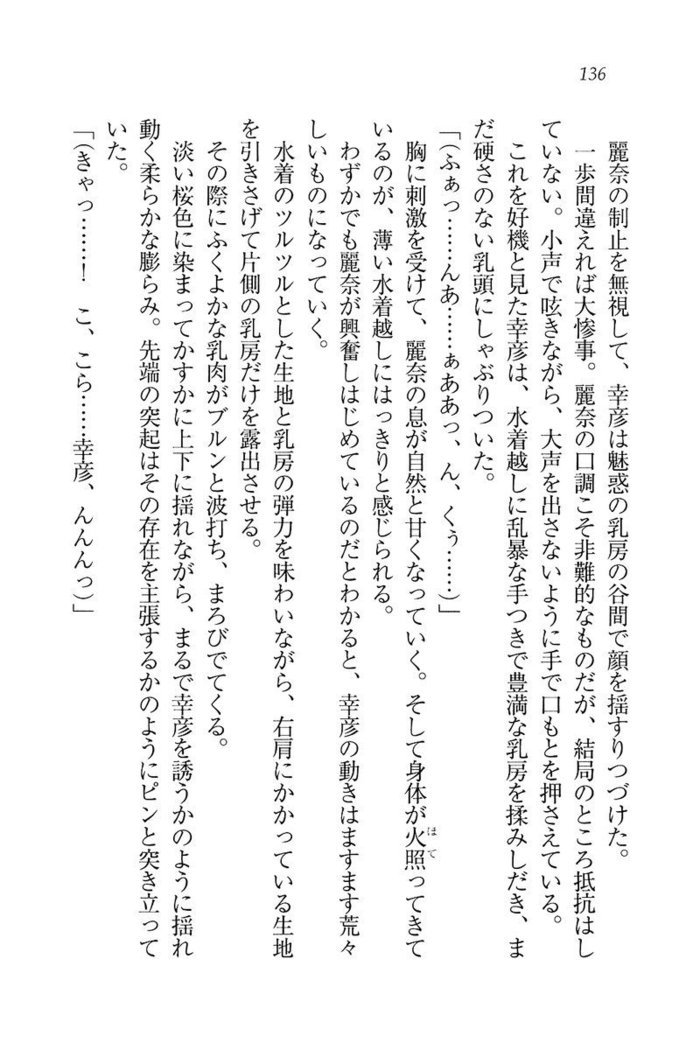 136
麗奈の制止を無視して、幸彦は魅惑の乳房の谷間で顔を揺すりつづけた。
一歩間違えれば大惨事。麗奈の口調こそ非難的なものだが、結局のところ抵抗はし
ていない。小声で呟きながら、大声を出さないように手で口もとを押さえている。
これを好機と見た幸彦は、水着越しに乱暴な手つきで豊満な乳房を揉みしだき、ま
だ硬さのない乳頭にしゃぶりついた。
「(ふぁっ……んあ……ぁああっ、ん、くぅ……)」
胸に刺激を受けて、麗奈の息が自然と甘くなっていく。そして身体が火照ってきて
いるのが、薄い水着越しにはっきりと感じられる。
わずかでも麗奈が興奮しはじめているのだとわかると、幸彦の動きはますます荒々
しいものになっていく。
水着のツルツルとした生地と乳房の弾力を味わいながら、右肩にかかっている生地
を引きさげて片側の乳房だけを露出させる。
その際にふくよかな乳肉がブルンと波打ち、まろびでてくる。
淡い桜色に染まってかすかに上下に揺れながら、まるで幸彦を誘うかのように揺れ
動く柔らかな膨らみ。先端の突起はその存在を主張するかのようにピンと突き立って
いた。
「(きゃっ……!　こ、こら……幸彦、んんんっ)」